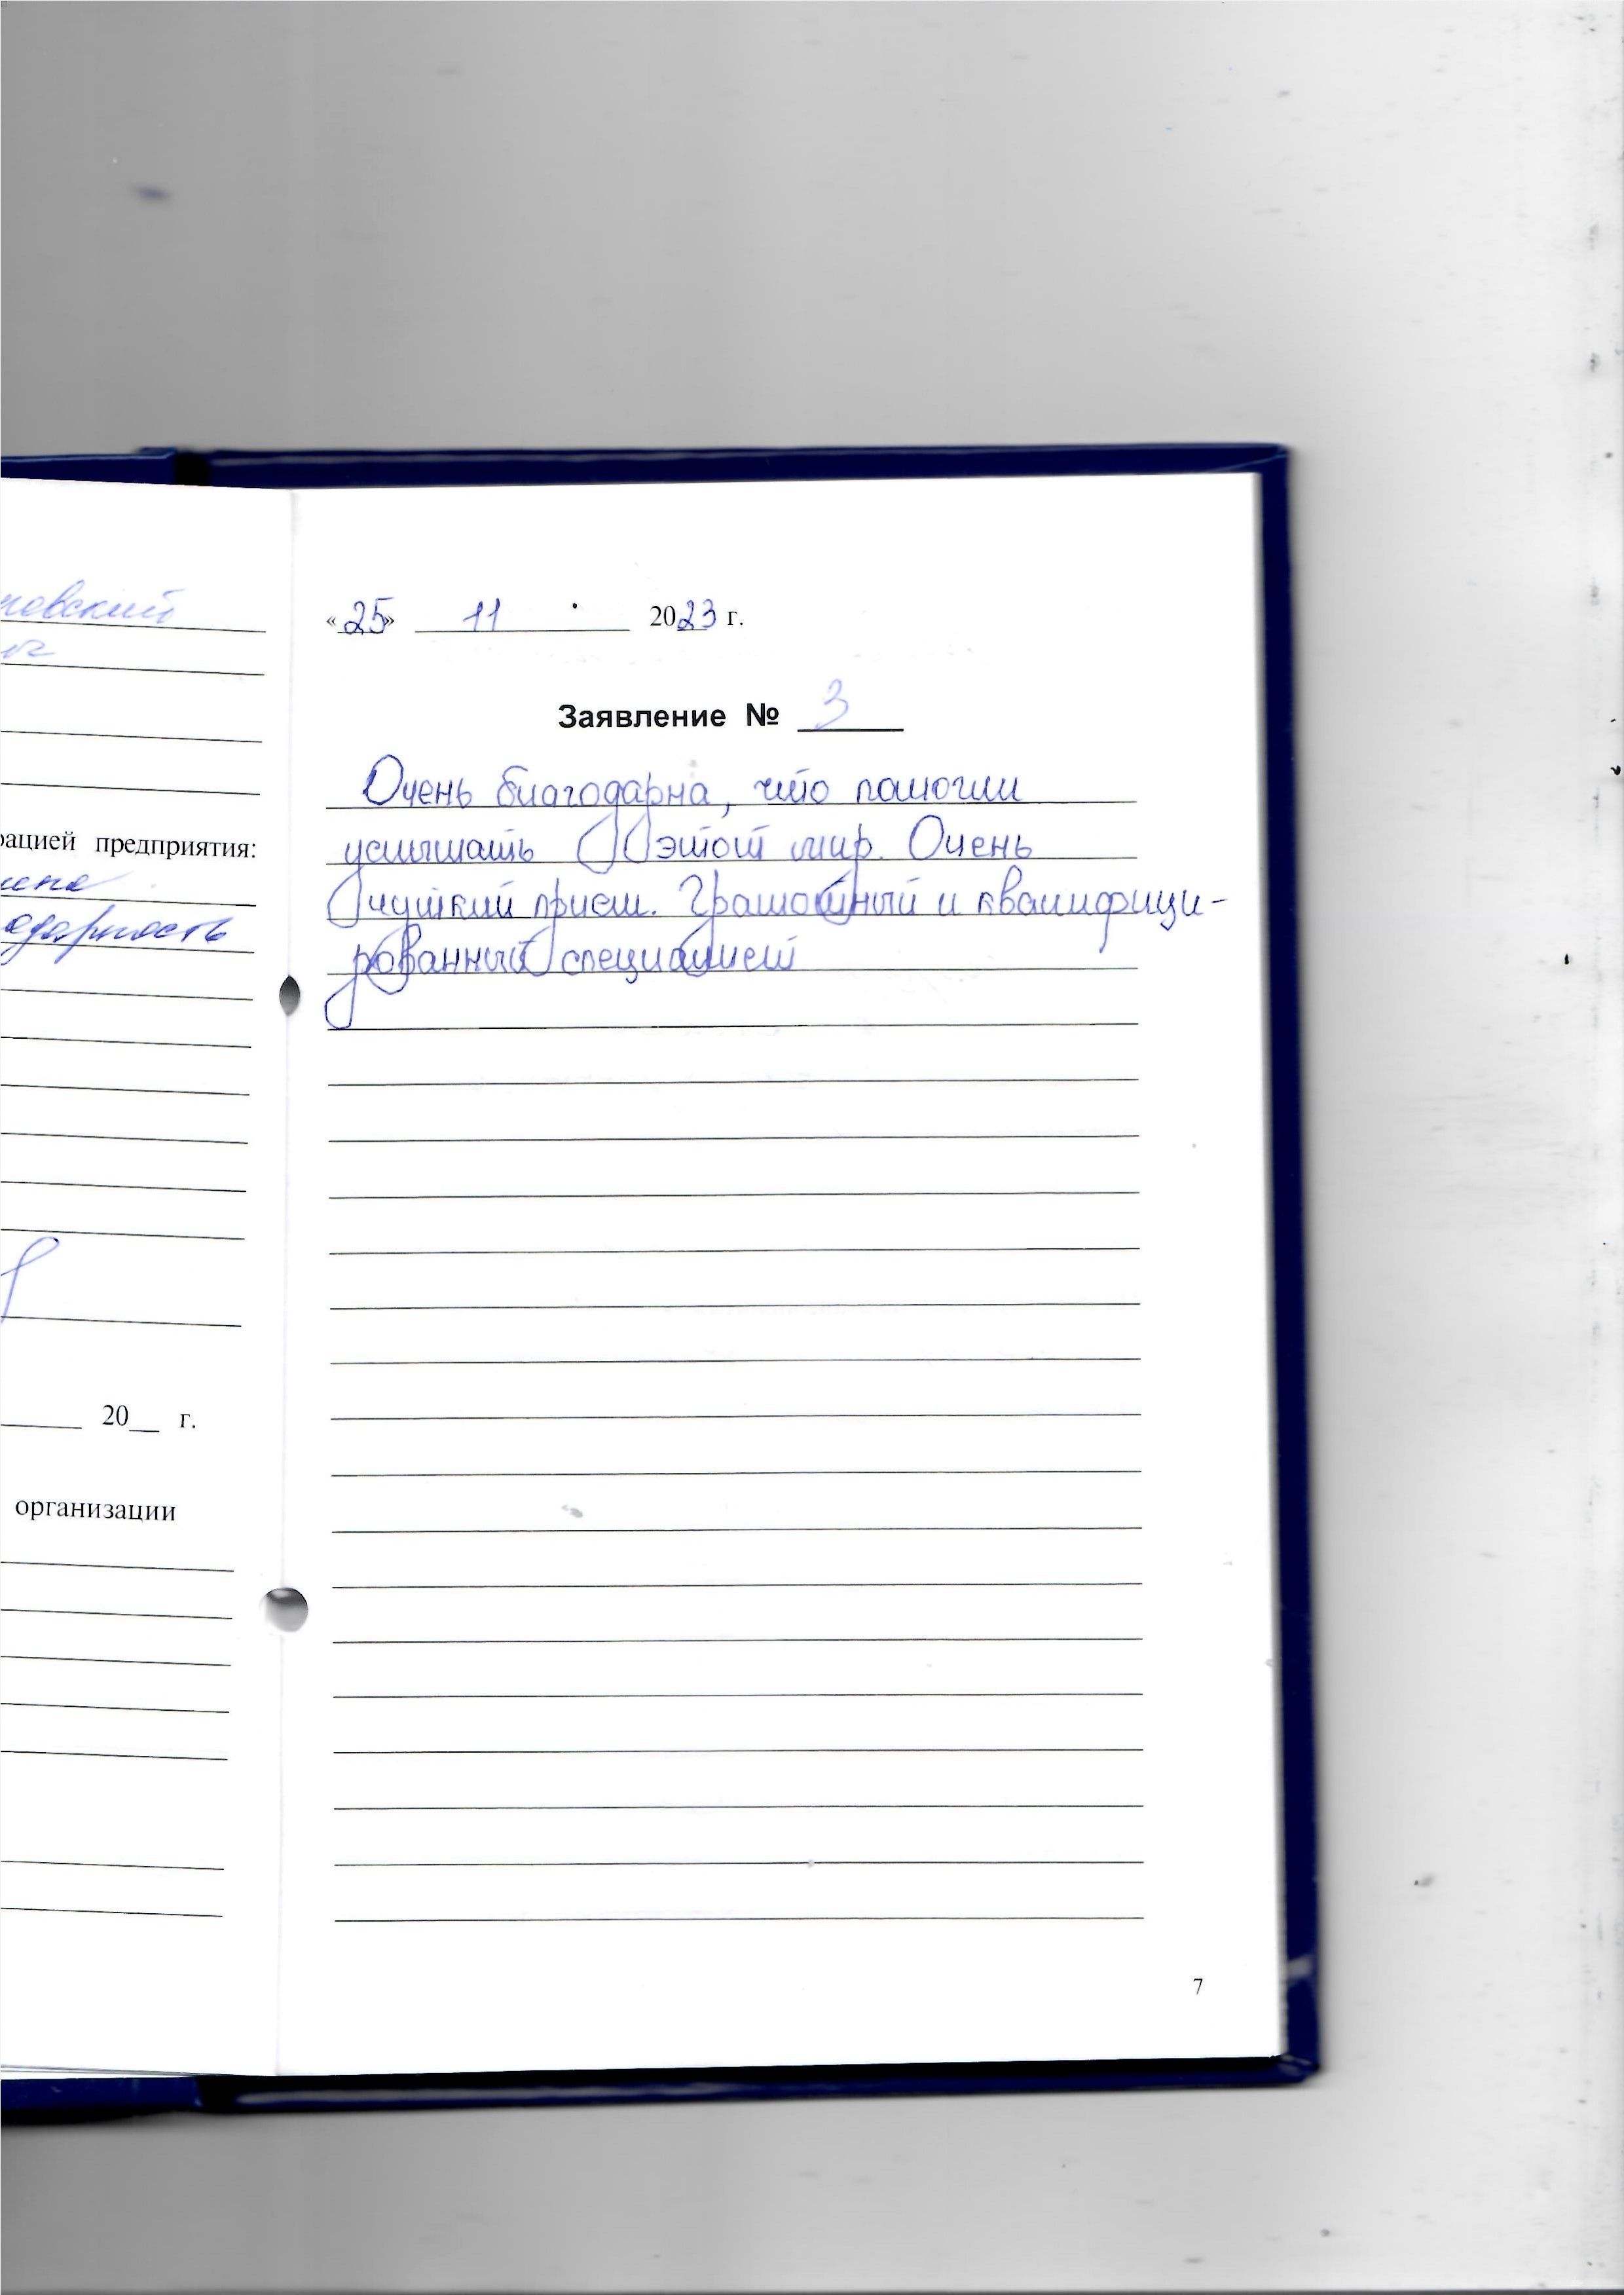 «25» 11 2023 г.
Заявление № 3
Очень благодарна, что помогли
услышать этот мир. Очень
чуткий прием. Грамотный и квалифици-
рованный специалист
7
рацией предприятия:
20__ г.
организации